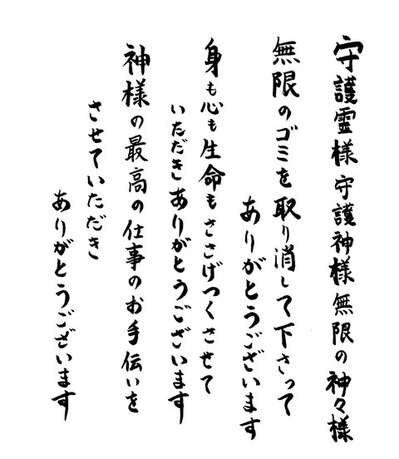 守護霊様守護神様無限の神々様
無限のゴミを取り消して下さって
ありがとうございます
身も心も生命もささげつくさせて
いただきありがとうございます
神様の最高の仕事のお手伝いを
させていただき
ありがとうございます